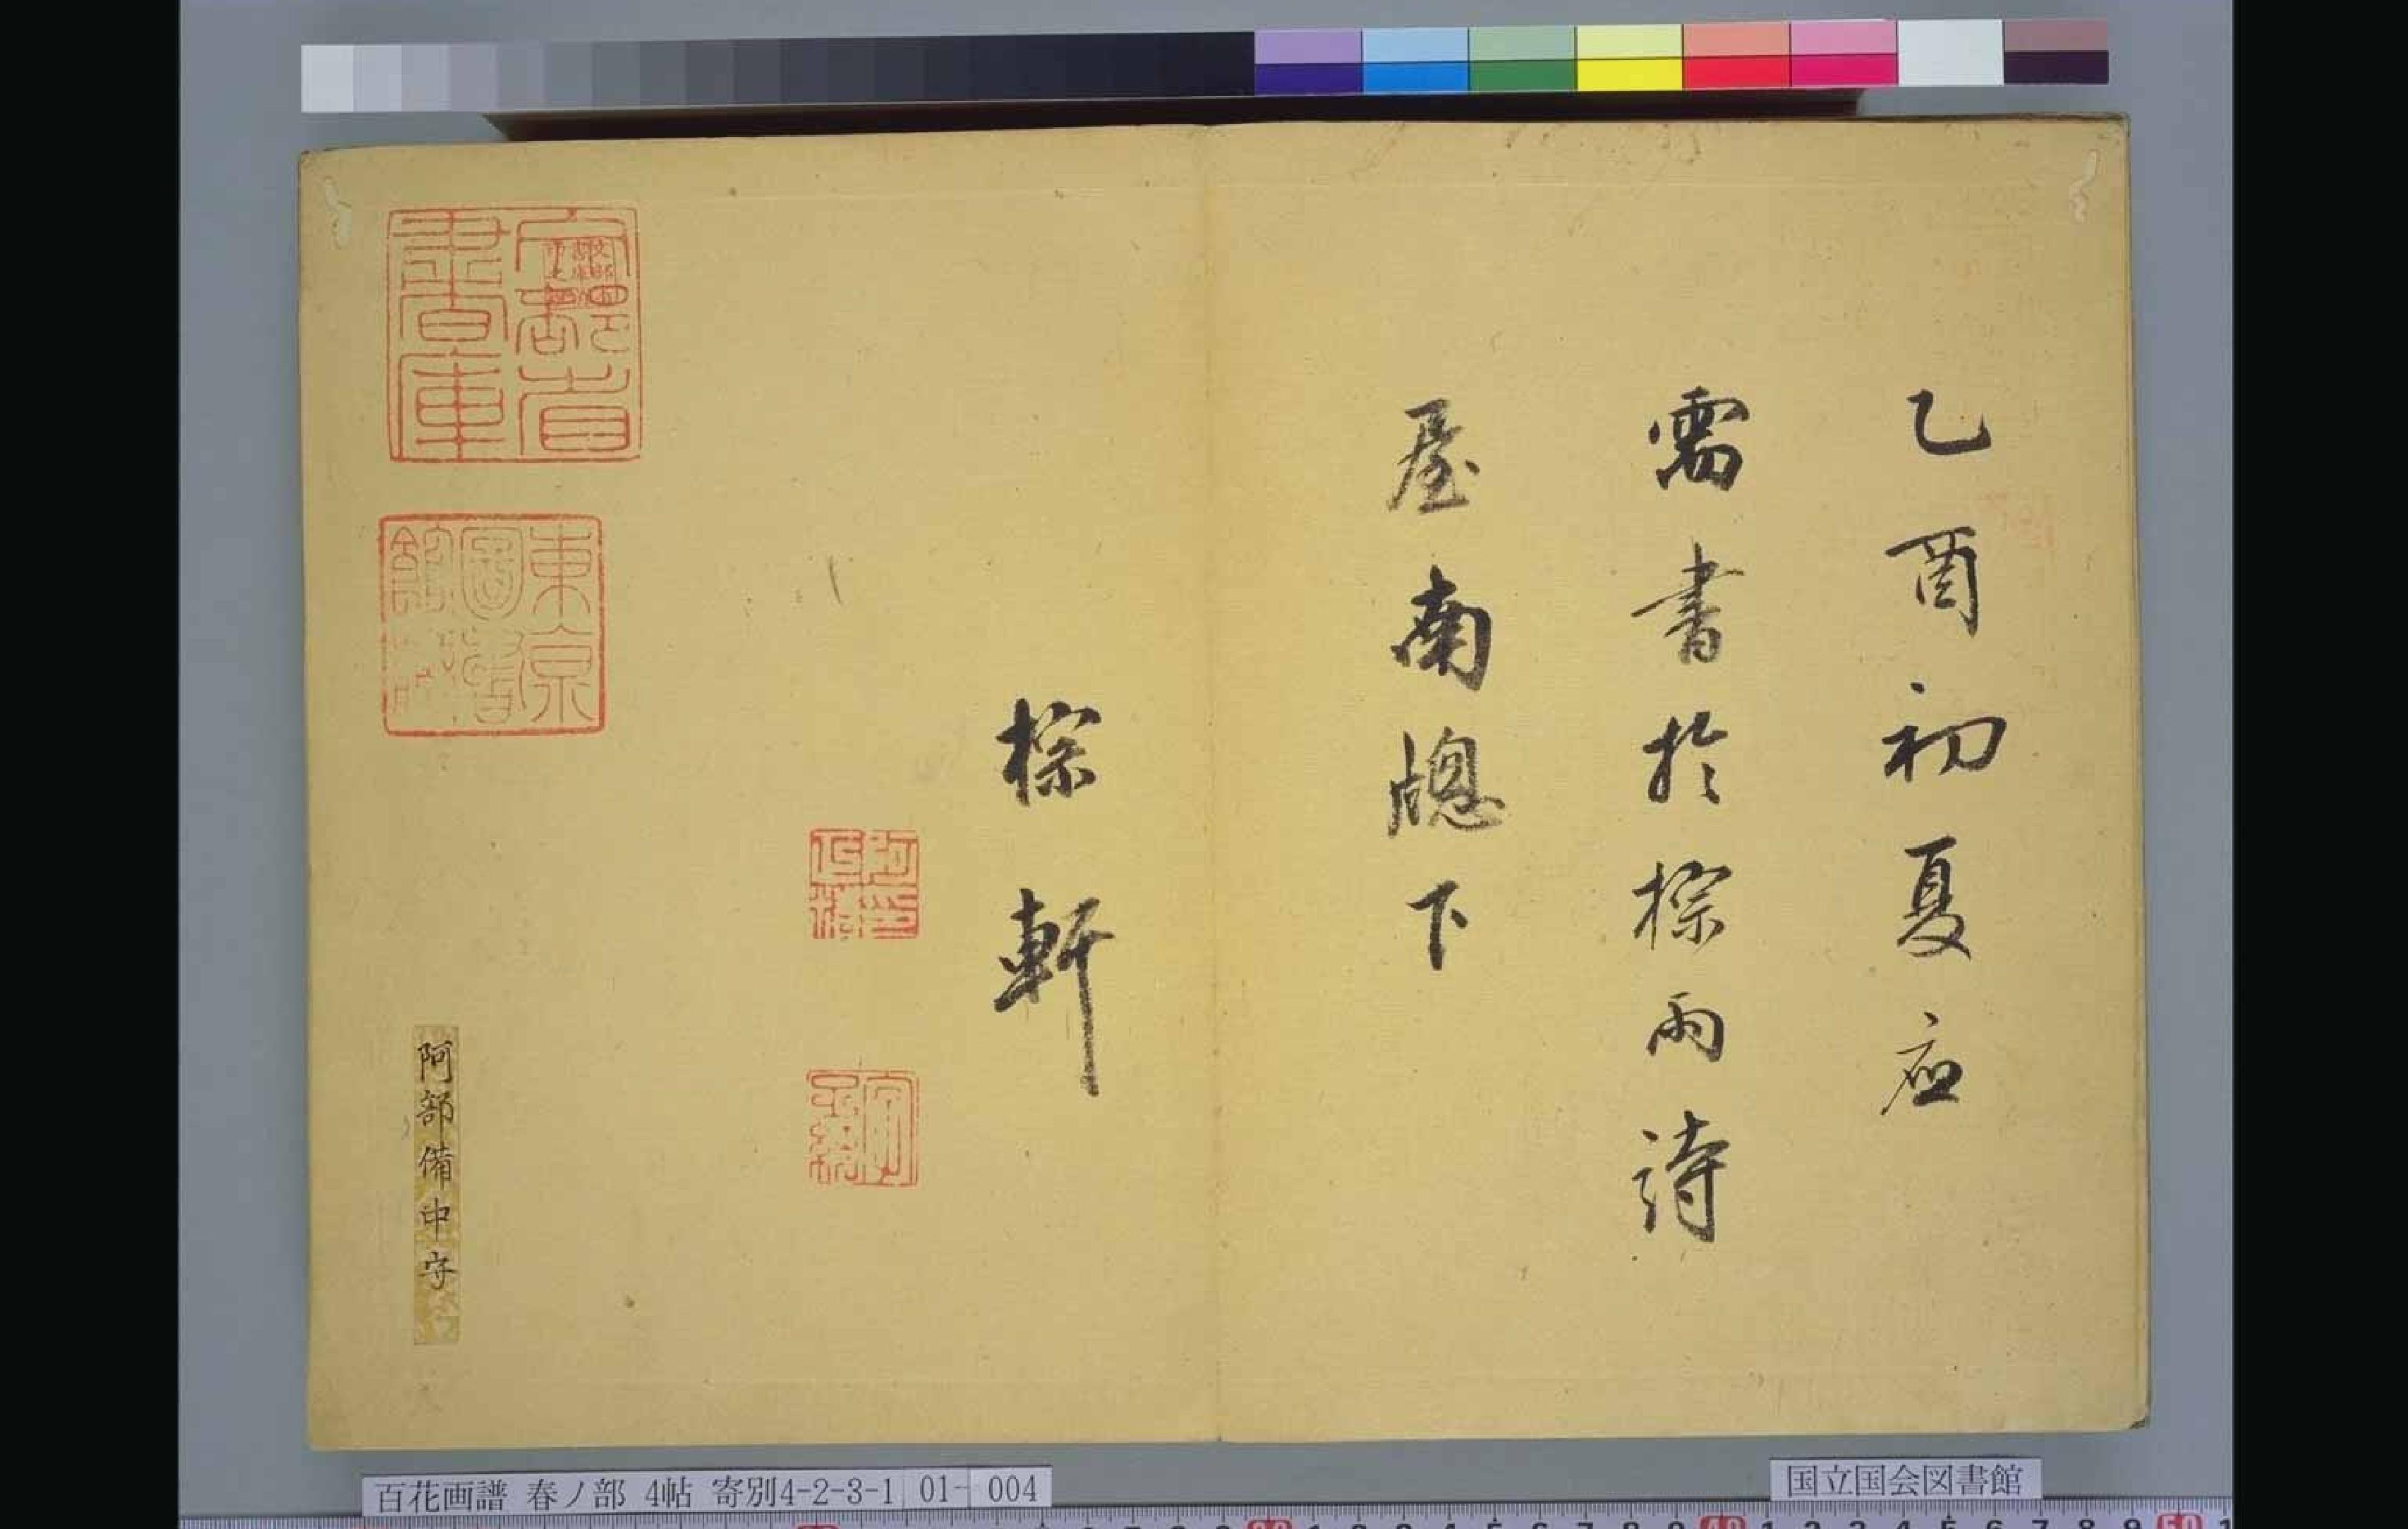 乙酉初夏応
需書於棕雨詩
屋南牕下
棕軒
阿部備中守
東京
図書
館
百花画譜 春ノ部 4帖 寄別4-2-3-1 01- 004
国立国会図書館